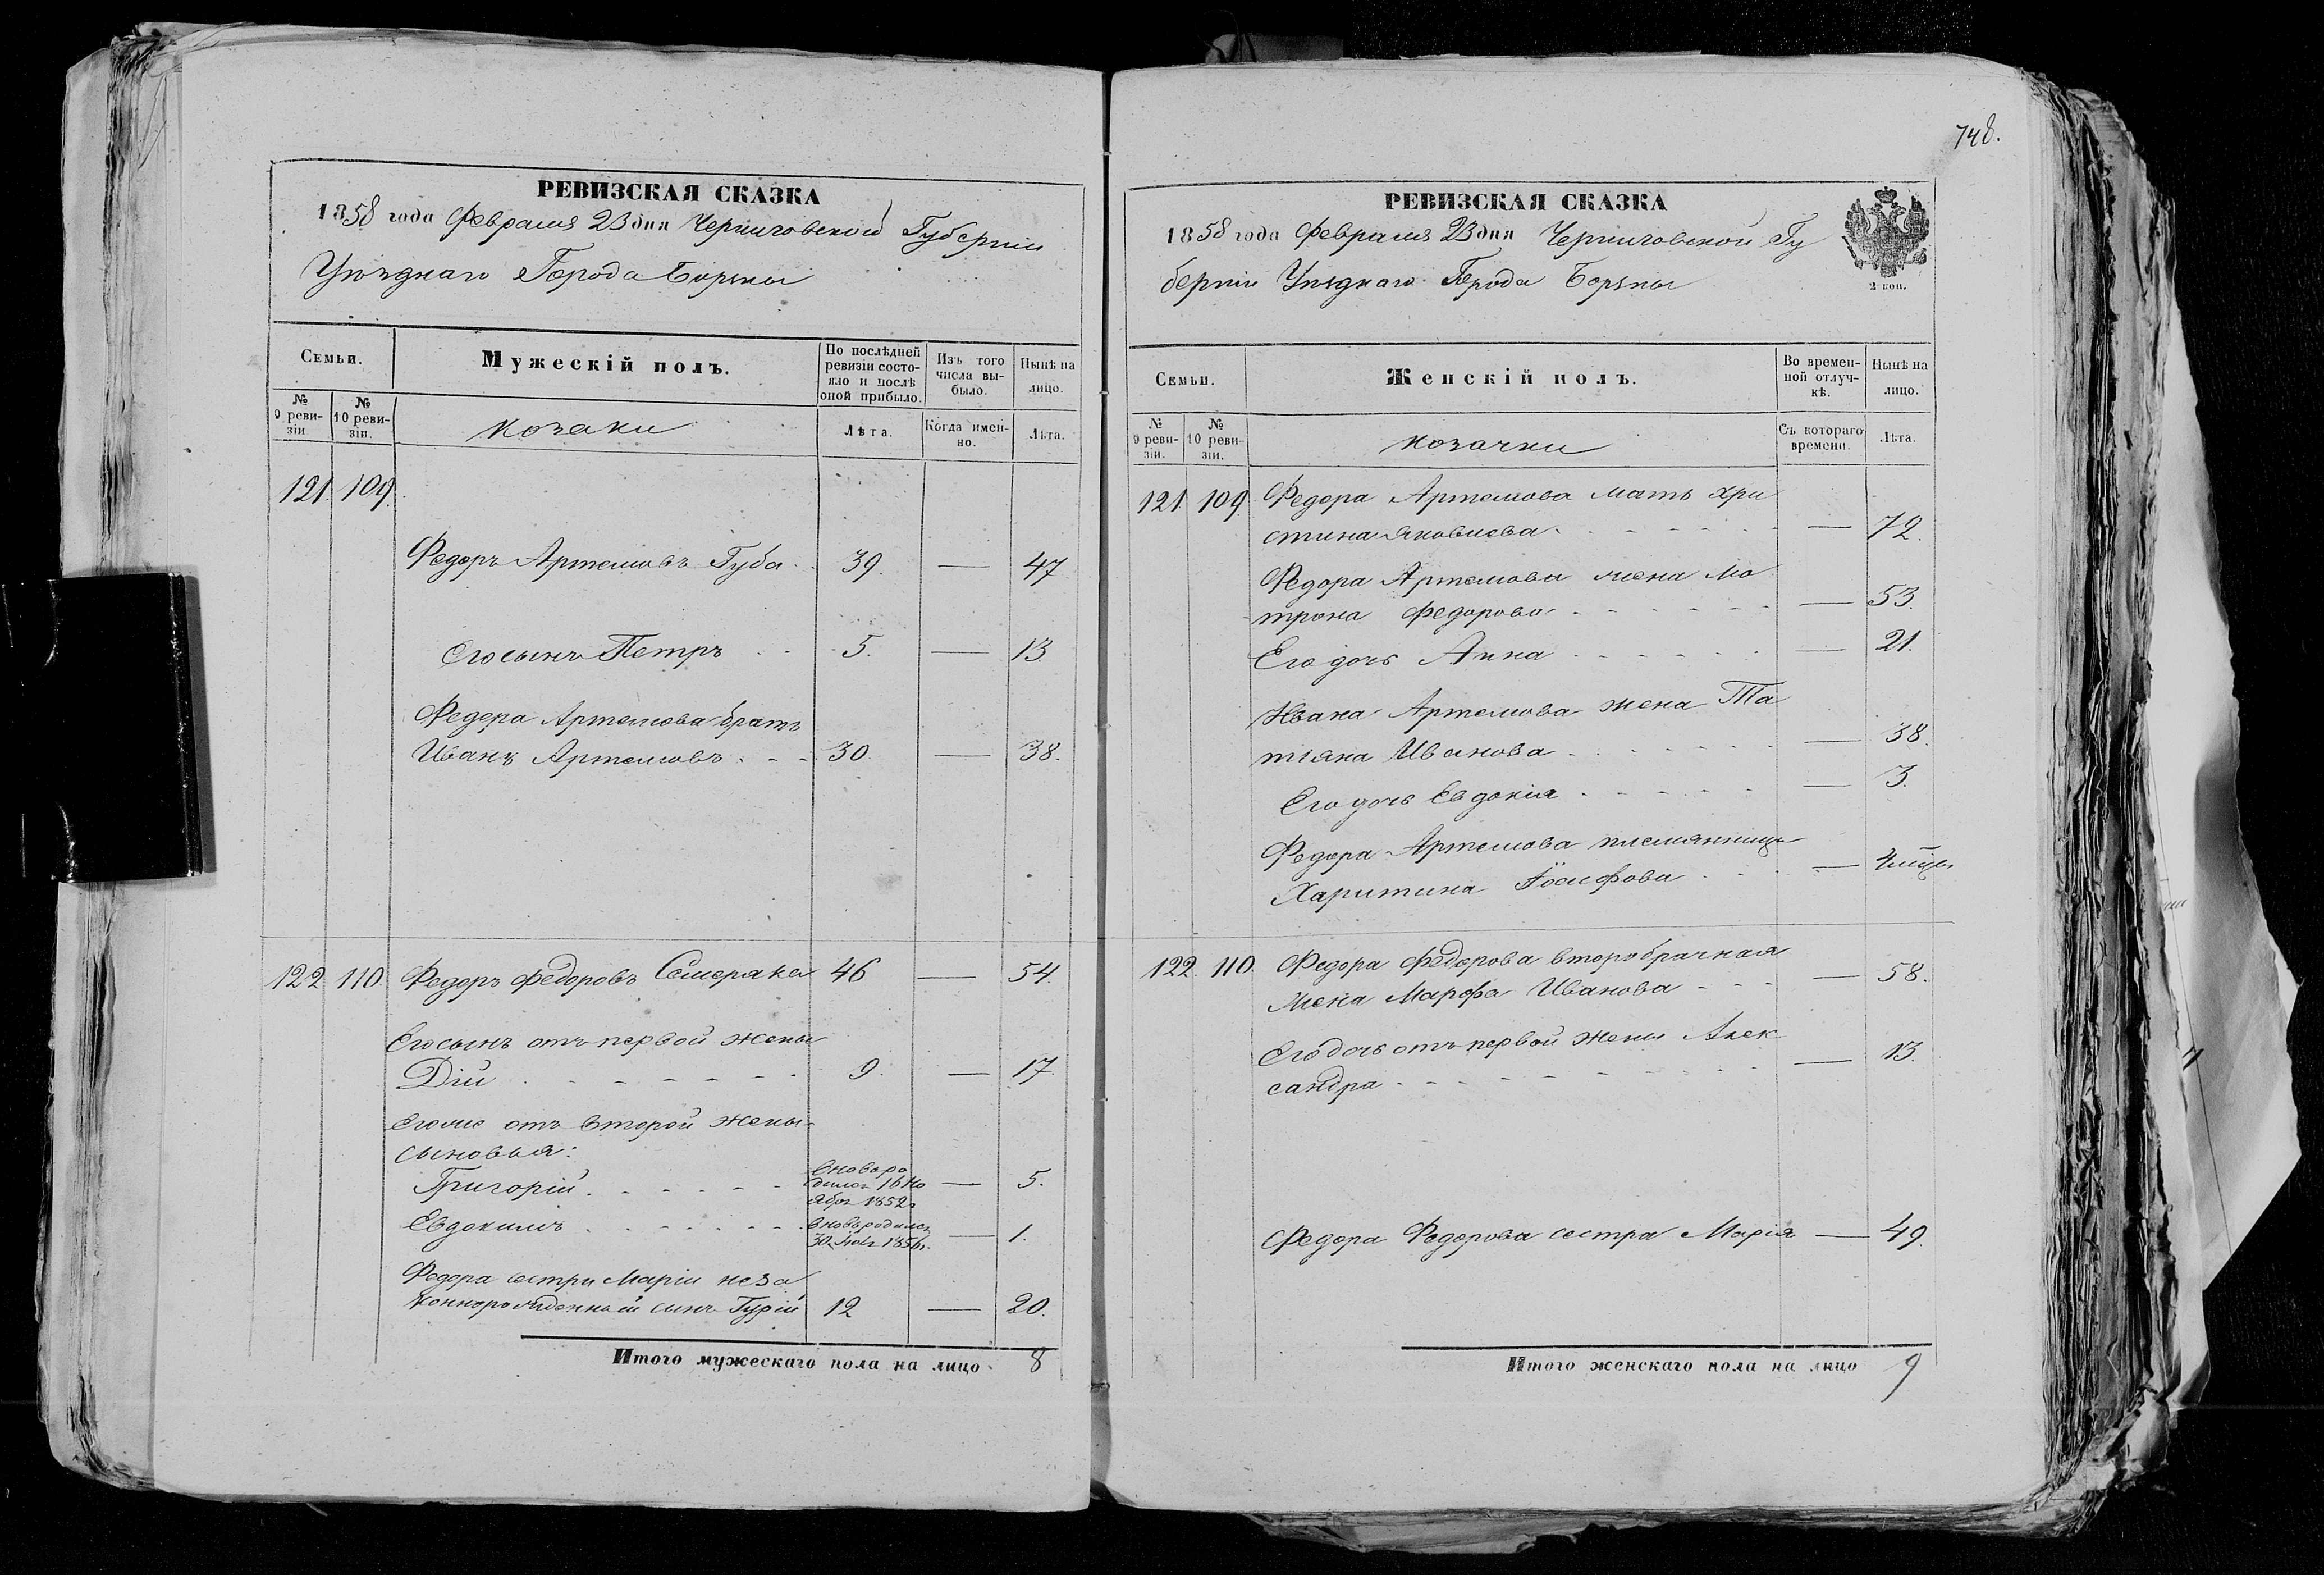 748.
РЕВИЗСКАЯ СКАЗКА
1858 года Февраля 23 дня Черниговской Губерніи
Уѣзднаго Города Борзны
Семьи.
Мужескій полъ.
По послѣдней ревизіи состояло и послѣ оной прибыло.
Изъ того числа выбыло.
Нынѣ на лицо.
№ 9 ревизіи
№ 10 ревизіи.
Козаки
Лѣта.
Когда именно.
Лѣта.
121. 109.
Федоръ Артемовъ Губа 39. — 47
Его сынъ Петръ 5. — 13
Федора Артемова братъ
Иванъ Артемовъ 30. — 38.
122 110 Федоръ Федоровъ Семеряка 46 — 54.
Его сынъ отъ первой жены
Дій 9. — 17.
Его же отъ второй жены
сыновья:
Григорій вновь ро
дился 16 Но
ября 1852 г — 5.
Евдокимъ вновь родился
30 1856 г. — 1.
Федора сестры Маріи неза
коннорожденный сынъ Гурій 12 — 20.
Итого мужескаго пола на лицо 8
РЕВИЗСКАЯ СКАЗКА
1858 года Февраля 23 дня Черниговской Гу
берніи Уѣзднаго Города Борзны
2 коп.
Семьи.
Женскій полъ.
Во временной отлучкѣ.
Нынѣ на лицо.
№ 9 ревизіи.
№ 10 ревизіи.
Козачки
Съ котораго времени.
Лѣта.
121. 109. Федора Артемова мать Хри
стина Яковлева — 72.
Федора Артемова жена Мо
трона Федорова — 53.
Его дочь Анна — 21.
Ивана Артемова жена Та
тіяна Иванова — 38.
Его дочь Евдокія — 3.
Федора Артемова племянница
Харитина Іосифова —
122. 110. Федора Федорова второбрачная
жена Марфа Иванова — 58.
Его дочь отъ первой жены Алек
сандра — 13.
Федора Федорова сестра Марія — 49.
Итого женскаго пола на лицо 9